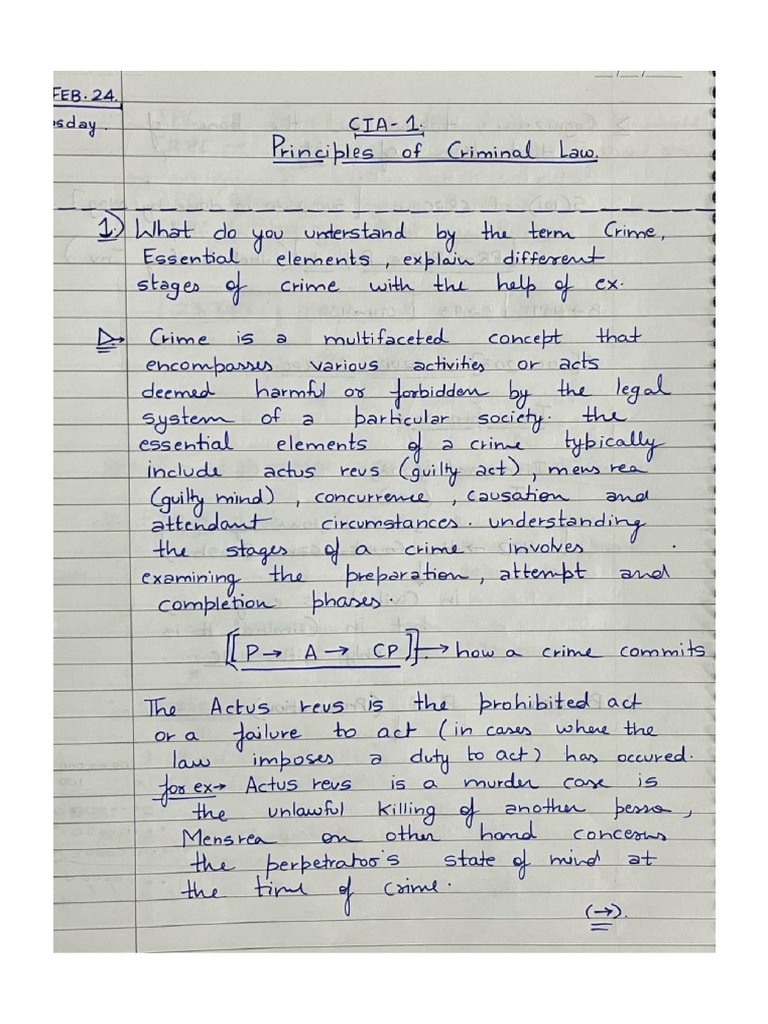 FEB. 24.
sday.
CIA - 1.
Principles of Criminal Law.
1.) What do you understand by the term Crime,
Essential elements, explain different
stages of crime with the help of ex.
Crime is a multifaceted concept that
encompasses various activities or acts
deemed harmful or forbidden by the legal
system of a particular society. the
essential elements of a crime typically
include actus reus (guilty act), mens rea
(guilty mind), concurrence, causation and
attendant circumstances. understanding
the stages of a crime involves
examining the preparation, attempt and
completion phases.
[[P → A → CP]] → how a crime commits
The Actus reus is the prohibited act
or a failure to act (in cases where the
law imposes a duty to act) has occured.
for ex → Actus reus is a murder case is
the unlawful killing of another perso,
Mensrea on other hand concerns
the perpetrator's state of mind at
the time of crime.
(→).